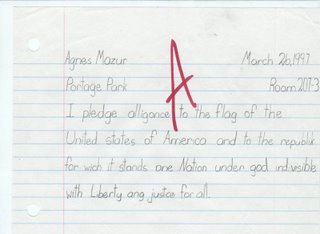 Agnes Mazur March 26, 1997
Portage Park Room 207-3
A
I pledge alligance to the flag of the
United states of America and to the republik
for wich it stands one Nation under god indivisible
with Liberty ang justae for all.